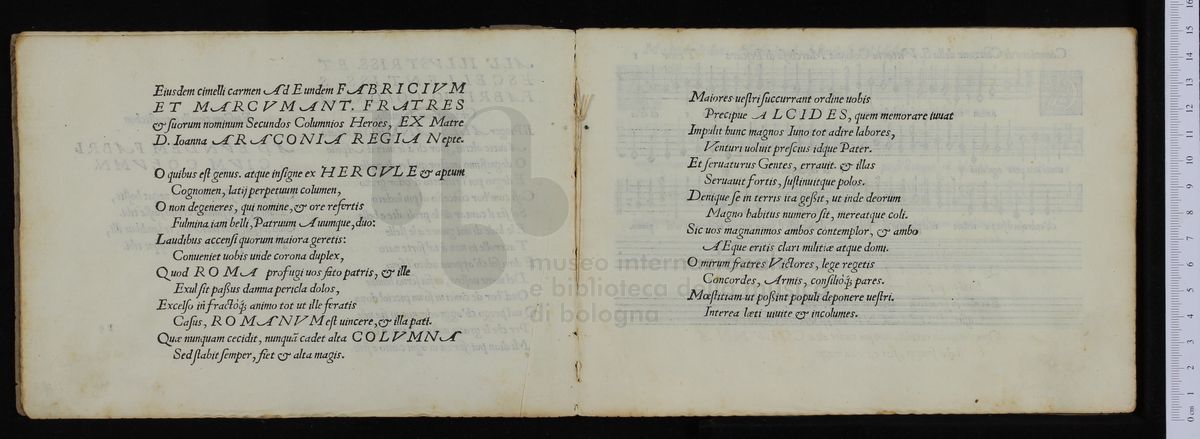 Eiusdem cimelli carmen Ad Eundem FABRICIVM
ET MARCVM ANT. FRATRES
& suorum nominum Secundos Columnios Heroes, EX Matre
D. Ioanna ARACONIA REGIA Nepte.
O quibus est genus. atque insigne ex HERCVLE & aptum
Cognomen, latij perpetuum columen,
O non degeneres, qui nomine, & ore refertis
Fulmina iam belli, Patruum Auumque, duo:
Laudibus accensi quorum maiora geretis:
Conueniet uobis unde corona duplex,
Quod ROMA profugi uos fato patris, & ille
Exul sit passus damna pericla dolos,
Excelso infractoq; animo tot ut ille feratis
Casus, ROMANVM est uincere, & illa pati.
Quæ nunquam cecidit, nunquā cadet alta COLVMNA
Sed stabit semper, fiet & alta magis.
Maiores uestri succurrant ordine uobis
Precipue ALCIDES, quem memorare iuuat
Impulit hunc magnos Iuno tot adire labores,
Venturi uoluit prescius idque Pater.
Et seruaturus Gentes, errauit. & illas
Seruauit fortis, sustinuitque polos.
Denique se in terris ita gessit, ut inde deorum
Magno habitus numero sit, mereatque coli.
Sic uos magnanimos ambos contemplor, & ambo
AEque eritis clari militiæ atque domi.
O mirum fratres Victores, lege regetis
Concordes, Armis, consilióq; pares.
Mœstitiam ut possint populi deponere uestri.
Interea læti uiuite & incolumes.
museo internazionale
e biblioteca della musica
di bologna